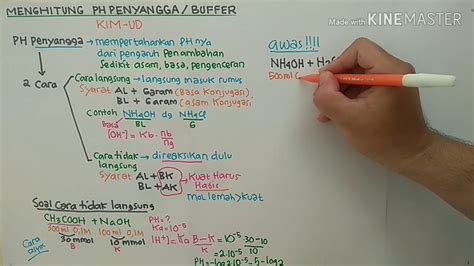 MENGHITUNG PH PENYANGGA / BUFFER
KIM-UD
Made with KINEMASTER
PH Penyangga → mempertahankan PH nya
dari pengaruh Penambahan
Sedikit asam, basa, pengenceran
2 Cara
Cara langsung → langsung masuk rumus
Syarat AL + Garam (Basa Konjugasi)
BL + Garam (asam Konjugasi)
Contoh NH4OH dg NH4Cl
basa BL G
[OH-] = Kb . nb/ng
Cara tidak langsung → direaksikan dulu
Syarat AL + BK
BL + AK
Kuat Harus Habis
mol lemah > kuat
Soal Cara tidak langsung
CH3COOH + NaOH
300 ml 0,1M 100 ml 0,1M
30 mmol 10 mmol
B K
Cara
PH = ?
Ka = 10-5
[H+] = Ka B-K/K = 10-5 30-10/10
= 2.10-5
PH = -log 2.10-5 = 5 - log 2
awas!!!!
NH4OH + H2
500ml